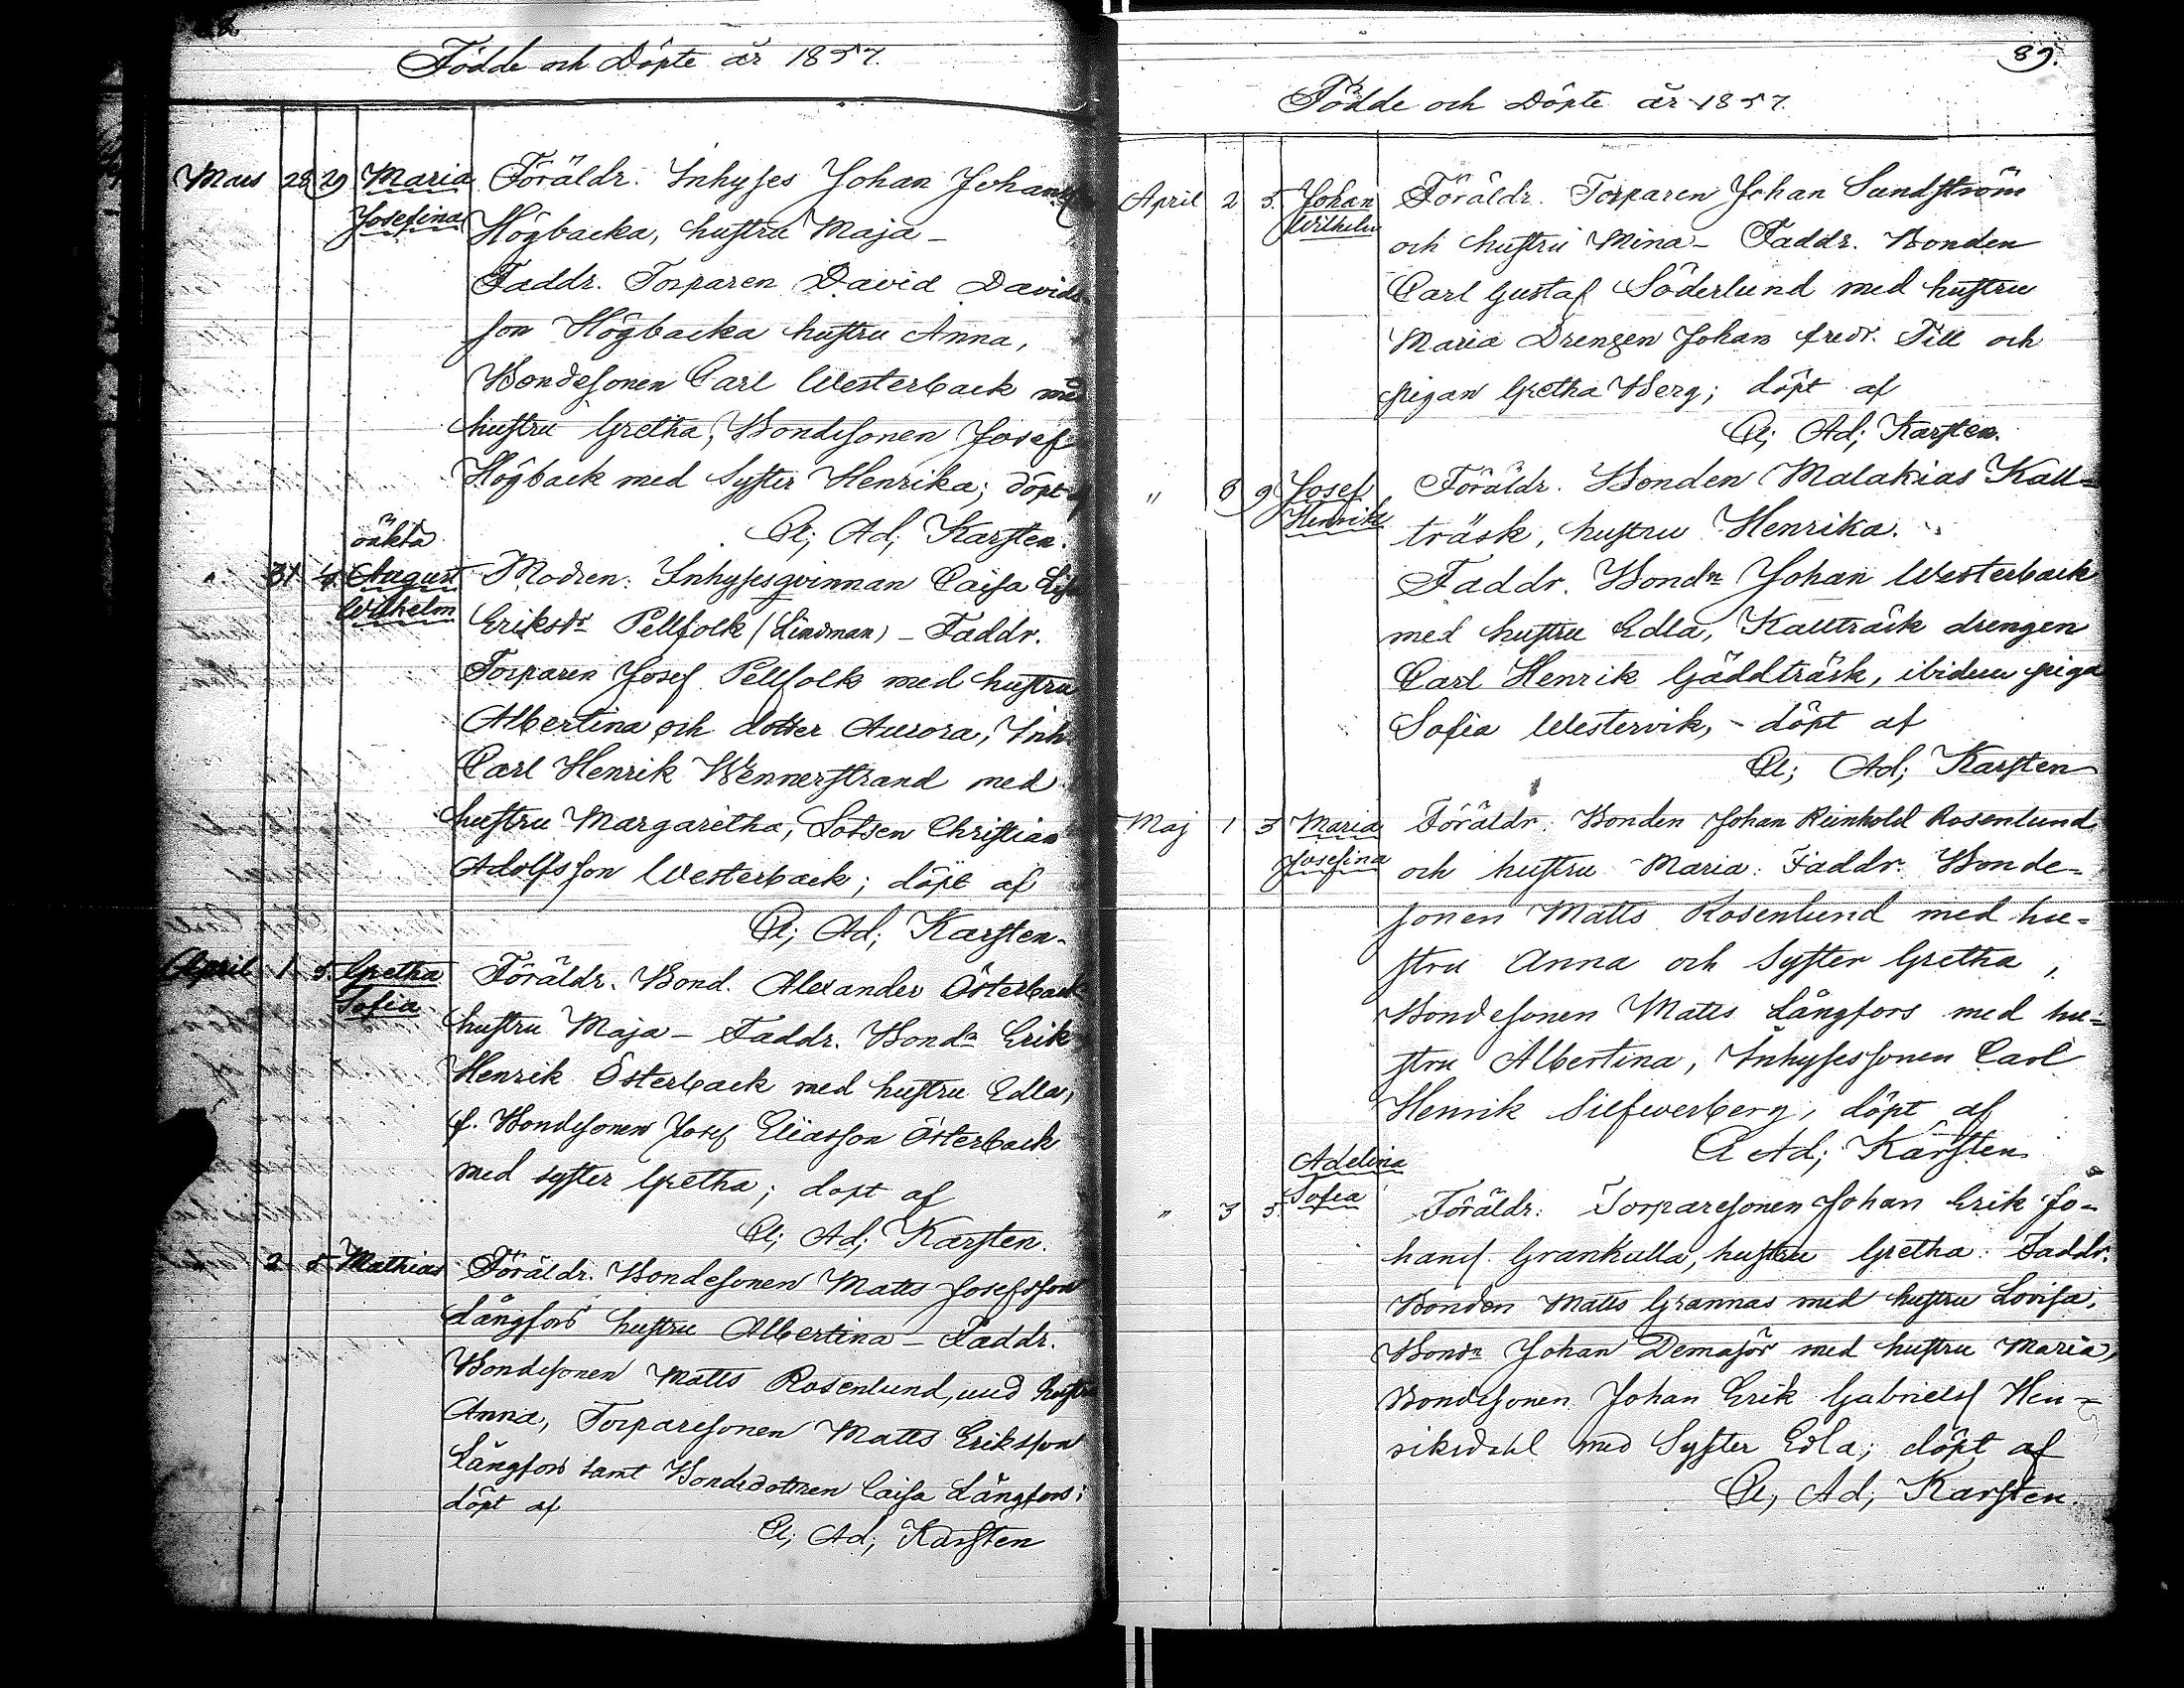 Födde och Döpte år 1857.
Mars 28 29 Maria Föräldr. Inhyses Johan Johansson
Josefina Högbacka, hustru Maja –
Faddr. Torparen David Davids-
son Högbacka hustru Anna,
Bondesonen Carl Westerback med
hustru Gretha, Bondesonen Josef
Högback med Syster Henrika; döpt af
Cl; Ad; Karsten.
oäkta
" 31 August Modren: Inhysesqvinnan Caisa Lisa
Wilhelm Eriksdr Pellfolk (Lindman) – Faddr.
Torparen Josef Pellfolk med hustru
Albertina och dotter Aurora, Inh.
Carl Henrik Wennerstrand med
hustru Margaretha, Lotsen Christian
Adolfsson Westerback; döpt af
Cl; Ad; Karsten.
April 1 5. Gretha Föräldr. Bond. Alexander Österback
Sofia hustru Maja – Faddr. Bondn Erik
Henrik Österback med hustru Edla,
f. Bondesonen Josef Eliasson Österback
med syster Gretha; dopt af
Cl; Ad; Karsten.
2 5 Mathias Föräldr. Bondesonen Matts Josefsson
Långfors hustru Albertina – Faddr.
Bondesonen Matts Rosenlund, med hustru
Anna, Torparesonen Matts Eriksson
Långfors samt Bondedottren Caisa Långfors;
döpt af
Cl; Ad; Karsten
89.
Födde och Döpte år 1857.
April 2 5. Johan Föräldr. Torparen Johan Sundström
Wilhelm och hustru Mina – Faddr. Bonden
Carl Gustaf Söderlund med hustru
Maria Drengen Johan Fredr. Till och
pigan Gretha Berg; döpt af
Cl; Ad; Karsten.
" 8 9 Josef Föräldr. Bonden Malakias Kall-
Henrik träsk, hustru Henrika.
Faddr. Bondn Johan Westerback
med hustru Edla, Kallträsk drengen
Carl Henrik Gäddträsk, ibidem piga
Sofia Westervik, – döpt af
Cl; Ad; Karsten
Maj 1 3 Maria Föräldr. Bonden Johan Reinhold Rosenlund
Josefina och hustru Maria: Faddr. Bonde-
sonen Matts Rosenlund med hu-
stru Anna och Syster Gretha,
Bondesonen Matts Långfors med hu-
stru Albertina, Inhysessonen Carl
Henrik Silfwerberg, döpt af
Cl Ad; Karsten
Adelina
" 3 5. Sofia Föräldr: Torparesonen Johan Erik Jo-
hans. Grankulla, hustru Gretha: Faddr.
Bonden Matts Grannas med hustru Lovisa,
Bondn Johan Demasör med hustru Maria,
Bondesonen Johan Erik Gabriels Hen-
riksdahl med Syster Edla; döpt af
Cl, Ad; Karsten.